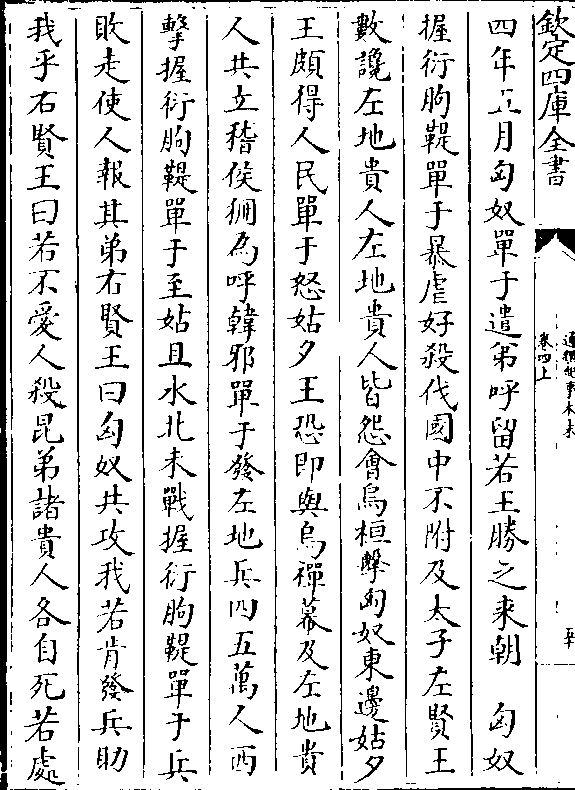 欽定四庫全書
通鑑紀事本末
卷四上
四年五月匈奴單于遣弟呼留若王勝之来朝　匈奴
握衍朐鞮單于暴虐好殺伐國中不附及太子左賢王
數讒左地貴人左地貴人皆怨會烏桓擊匈奴東邊姑夕
王頗得人民單于怒姑夕王恐即與烏禪幕及左地貴
人共立稽侯狦為呼韓邪單于發左地兵四五萬人西
擊握衍朐鞮單于至姑且水北未戰握衍朐鞮單于兵
敗走使人報其弟右賢王曰匈奴共攻我若肯發兵助
我乎右賢王曰若不愛人殺昆弟諸貴人各自死若處